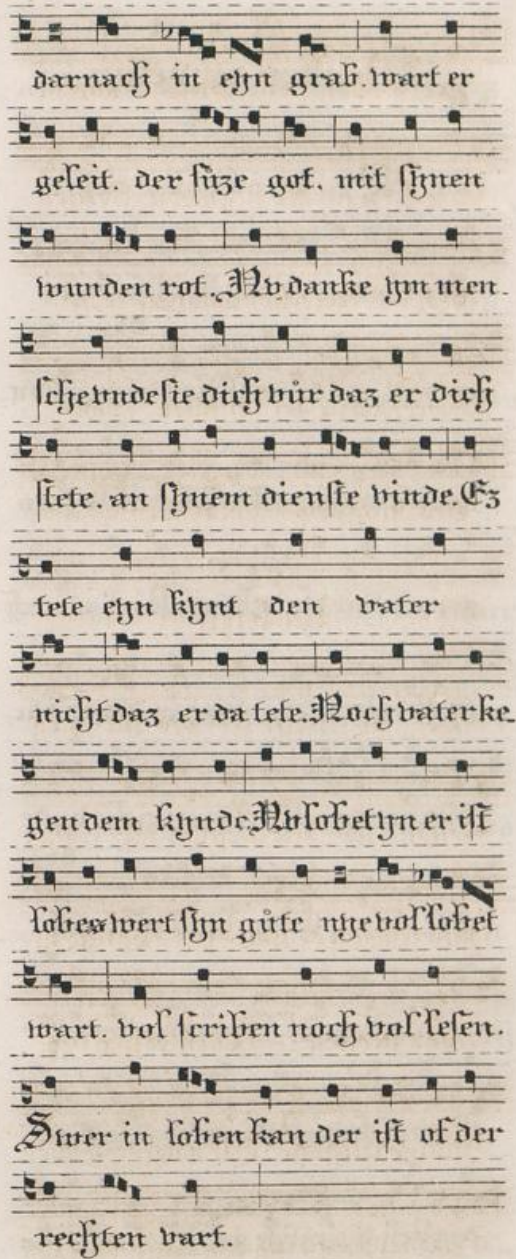 darnach in eyn grab. wart er
geleit. der süze got. mit synen
wunden rot. Nv danke ym men-
sche vnde sie dich vůr daz er dich
stete. an synem dienste vinde. Ez
tete eyn kynt den vater
nicht daz er da tete. Noch vater ke-
gen dem kynde. Nv lobet yn er ist
lobes wert syn gůte nye vol lobet
wart. vol scriben noch vol lesen.
Swer in loben kan der ist of der
rechten vart.